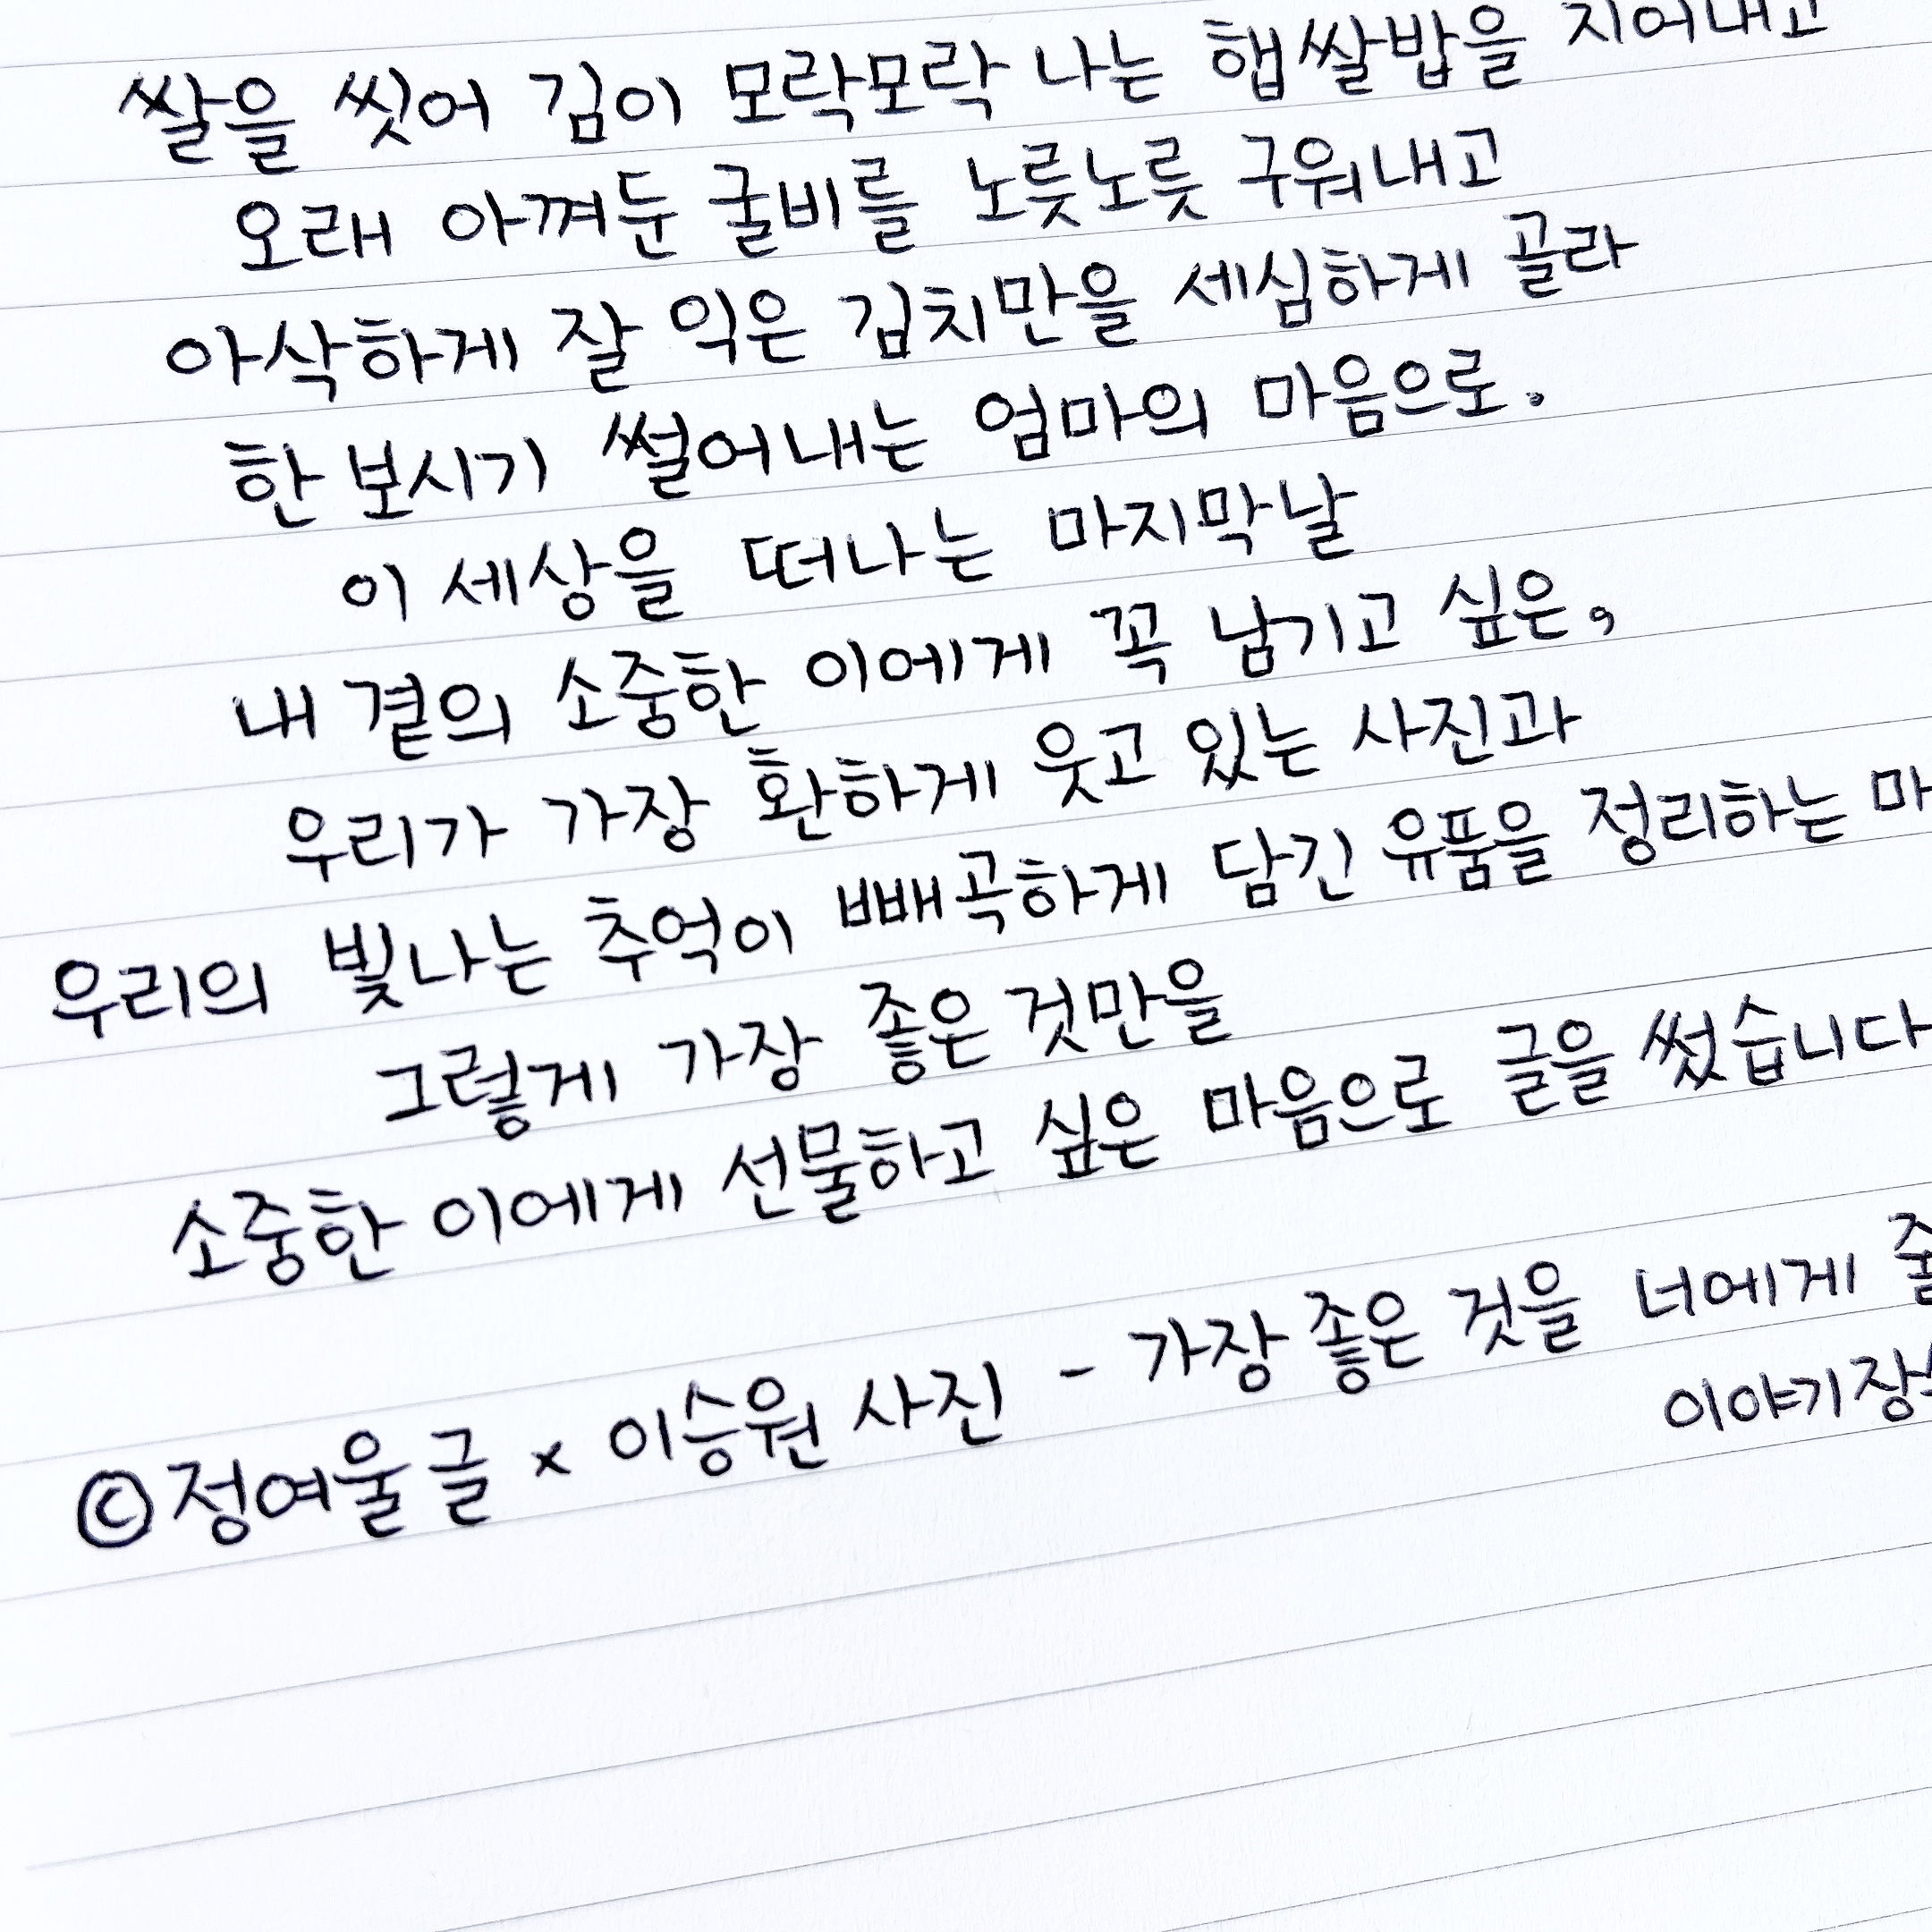 쌀을 씻어 김이 모락모락 나는 햅쌀밥을 지어내고
오래 아껴둔 굴비를 노릇노릇 구워내고
아삭하게 잘 익은 김치만을 세심하게 골라
한 보시기 썰어내는 엄마의 마음으로.
이 세상을 떠나는 마지막날
내 곁의 소중한 이에게 꼭 남기고 싶은,
우리가 가장 환하게 웃고 있는 사진과
우리의 빛나는 추억이 빼곡하게 담긴 유품을 정리하는
그렇게 가장 좋은 것만을
소중한 이에게 선물하고 싶은 마음으로 글을 썼습니다
©정여울 글 x 이승원 사진 - 가장 좋은 것을 너에게 줄
이야기장